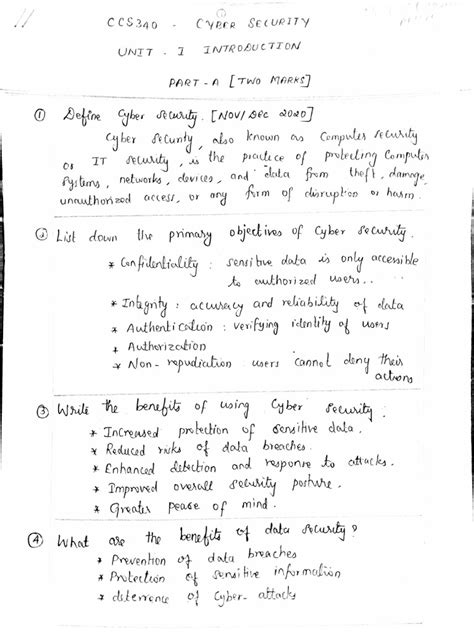 CCS340 - CYBER SECURITY
UNIT - I INTRODUCTION
PART-A [TWO MARKS]
① Define Cyber Security. [NOV/DEC 2020]
Cyber Security, also known as Computer Security
or IT Security, is the practice of protecting Computer
Systems, networks, devices, and data from theft, damage,
unauthorized access, or any form of disruption or harm.
② List down the primary objectives of Cyber Security.
* Confidentiality : sensitive data is only accessible
to authorized users..
* Integrity : accuracy and reliability of data
* Authentication : verifying identity of users
* Authorization
* Non-repudiation : users cannot deny their
actions
③ Write the benefits of using Cyber Security.
* Increased protection of sensitive data.
* Reduced risks of data breaches.
* Enhanced detection and response to attacks.
* Improved overall security posture.
* Greater peace of mind.
④ What are the benefits of data security?
* Prevention of data breaches
* Protection of sensitive information
* deterrence of Cyber-attacks